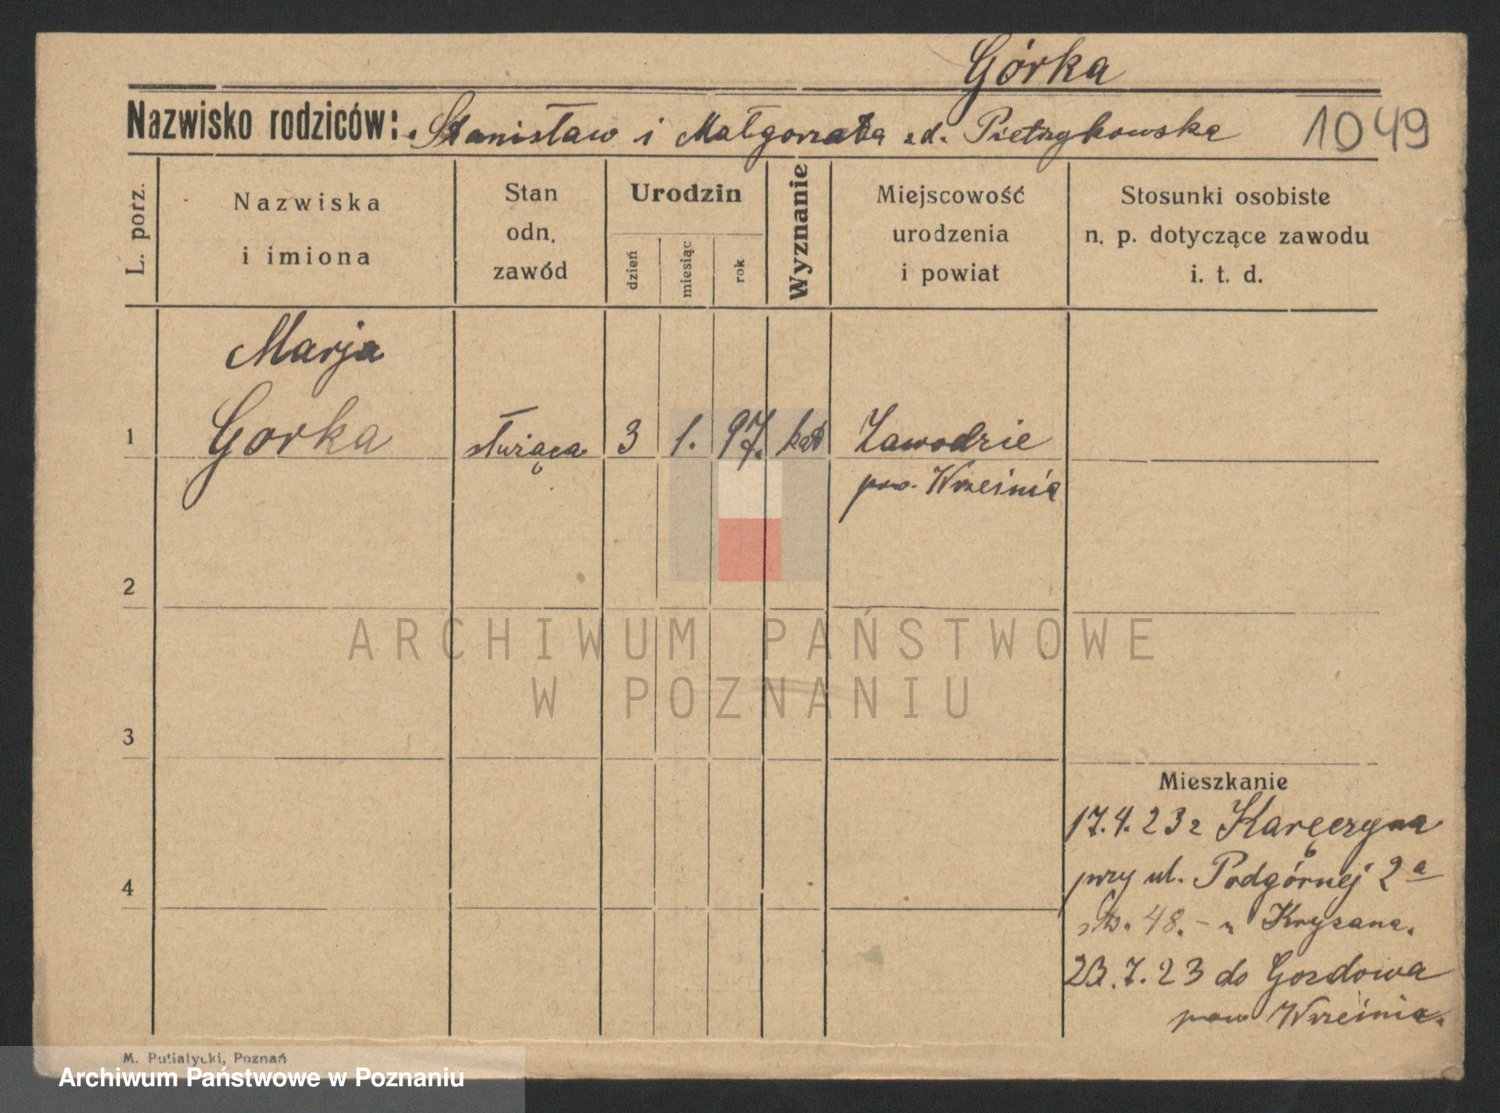 Górka
Nazwisko rodziców: Stanisław i Małgorzata zd. Pietrzykowska 1049
L. porz.
Nazwiska i imiona
Stan odn. zawód
Urodzin
dzień
miesiąc
rok
Wyznanie
Miejscowość urodzenia i powiat
Stosunki osobiste n. p. dotyczące zawodu i. t. d.
Marja
1 Gorka służąca 3 1. 97. kat Zawodzie
pow. Września
2
ARCHIWUM PAŃSTWOWE
W POZNANIU
3
Mieszkanie
17.4.23 z
przy ul. Podgórnej 2a
4
48. - u Krysana.
23.7.23 do Gozdowa
pow Września.
M. Putiatycki, Poznań
Archiwum Państwowe w Poznaniu